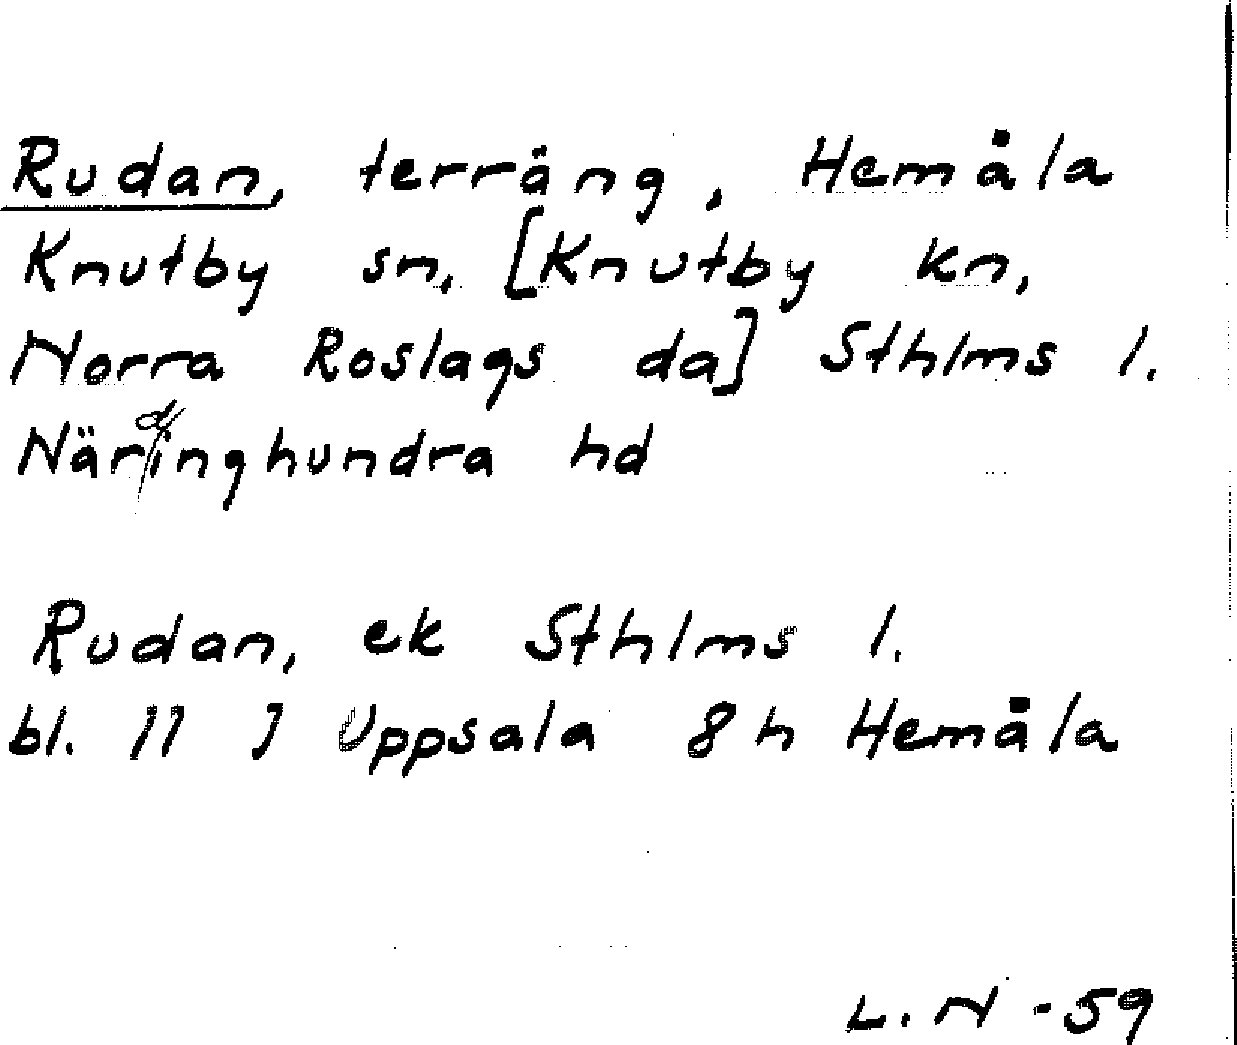 Rudan, terräng, Hemåla
Knutby sn, [Knutby kn,
Norra Roslags da] Sthlms l.
Närdinghundra hd
Rudan, ek Sthlms l.
bl. 11 I Uppsala 8 h Hemåla
L. N -59